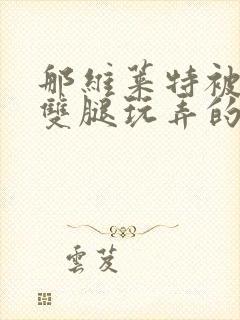 那維萊特被
雙腿玩弄的
雲芨